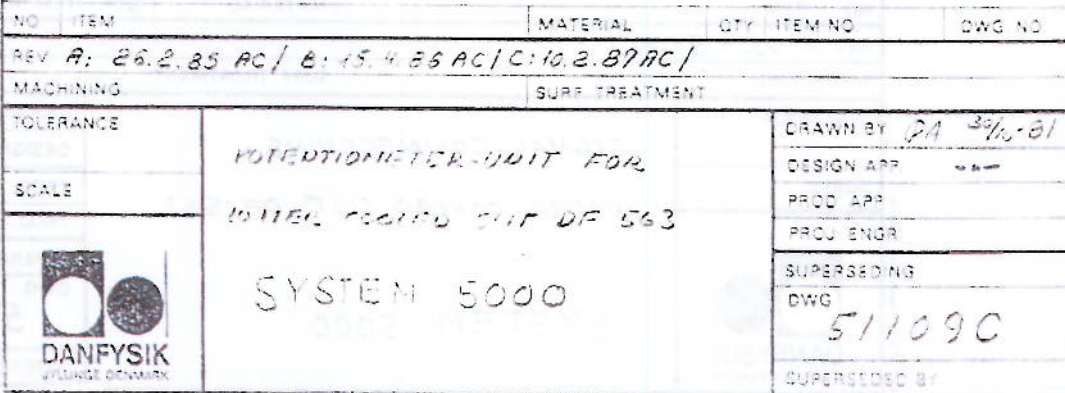 NO. ITEM MATERIAL QTY ITEM NO. DWG NO
REV A: 26.2.85 AC/ B: 15.4.86 AC/ C: 10.2.87 AC/
MACHINING SURF. TREATMENT
TOLERANCE
SCALE
POTENTIOMETER-UNIT FOR
WATER COOLED SLIT DF 563
SYSTEM 5000
DANFYSIK
JYLLINGE DENMARK
DRAWN BY PA 30/10-81
DESIGN APP.
PROD APP.
PROJ ENGR
SUPERSEDING
DWG
51109C
SUPERSEDED BY